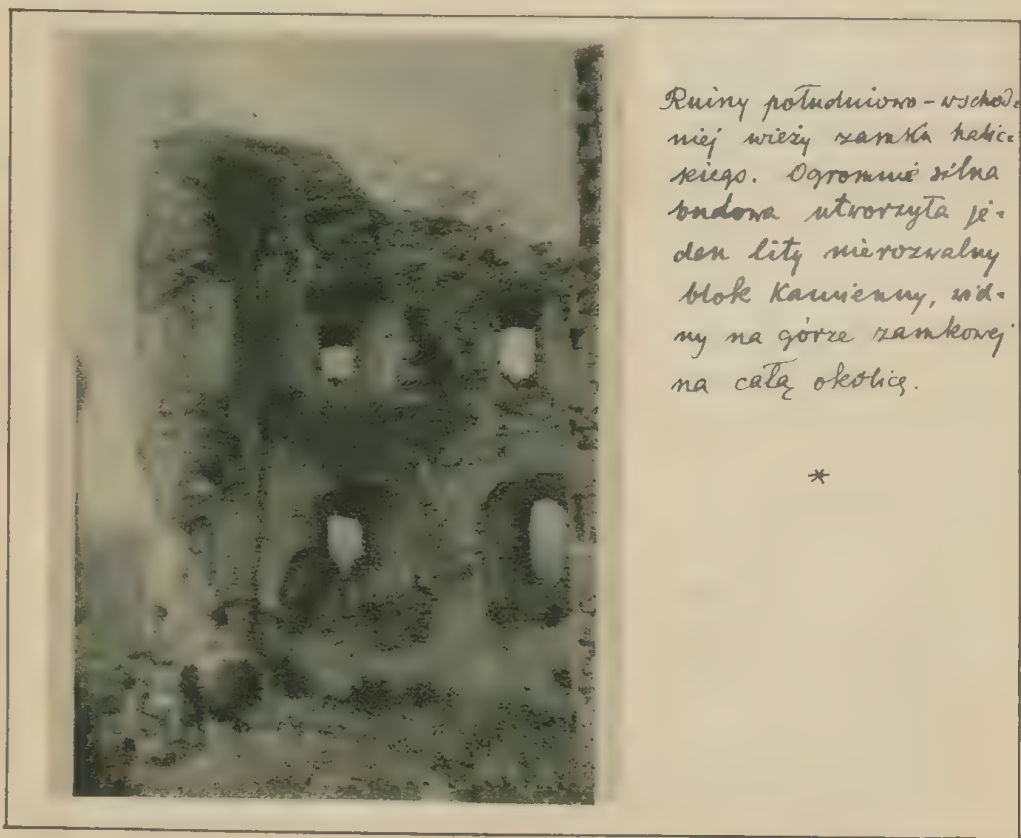 Ruiny południowo-wschod-
niej wieży zamku halic-
kiego. Ogromnie silna
budowa utworzyła je-
den lity nierozwalny
blok kamienny, wid-
ny na górze zamkowej
na całą okolicę.
*